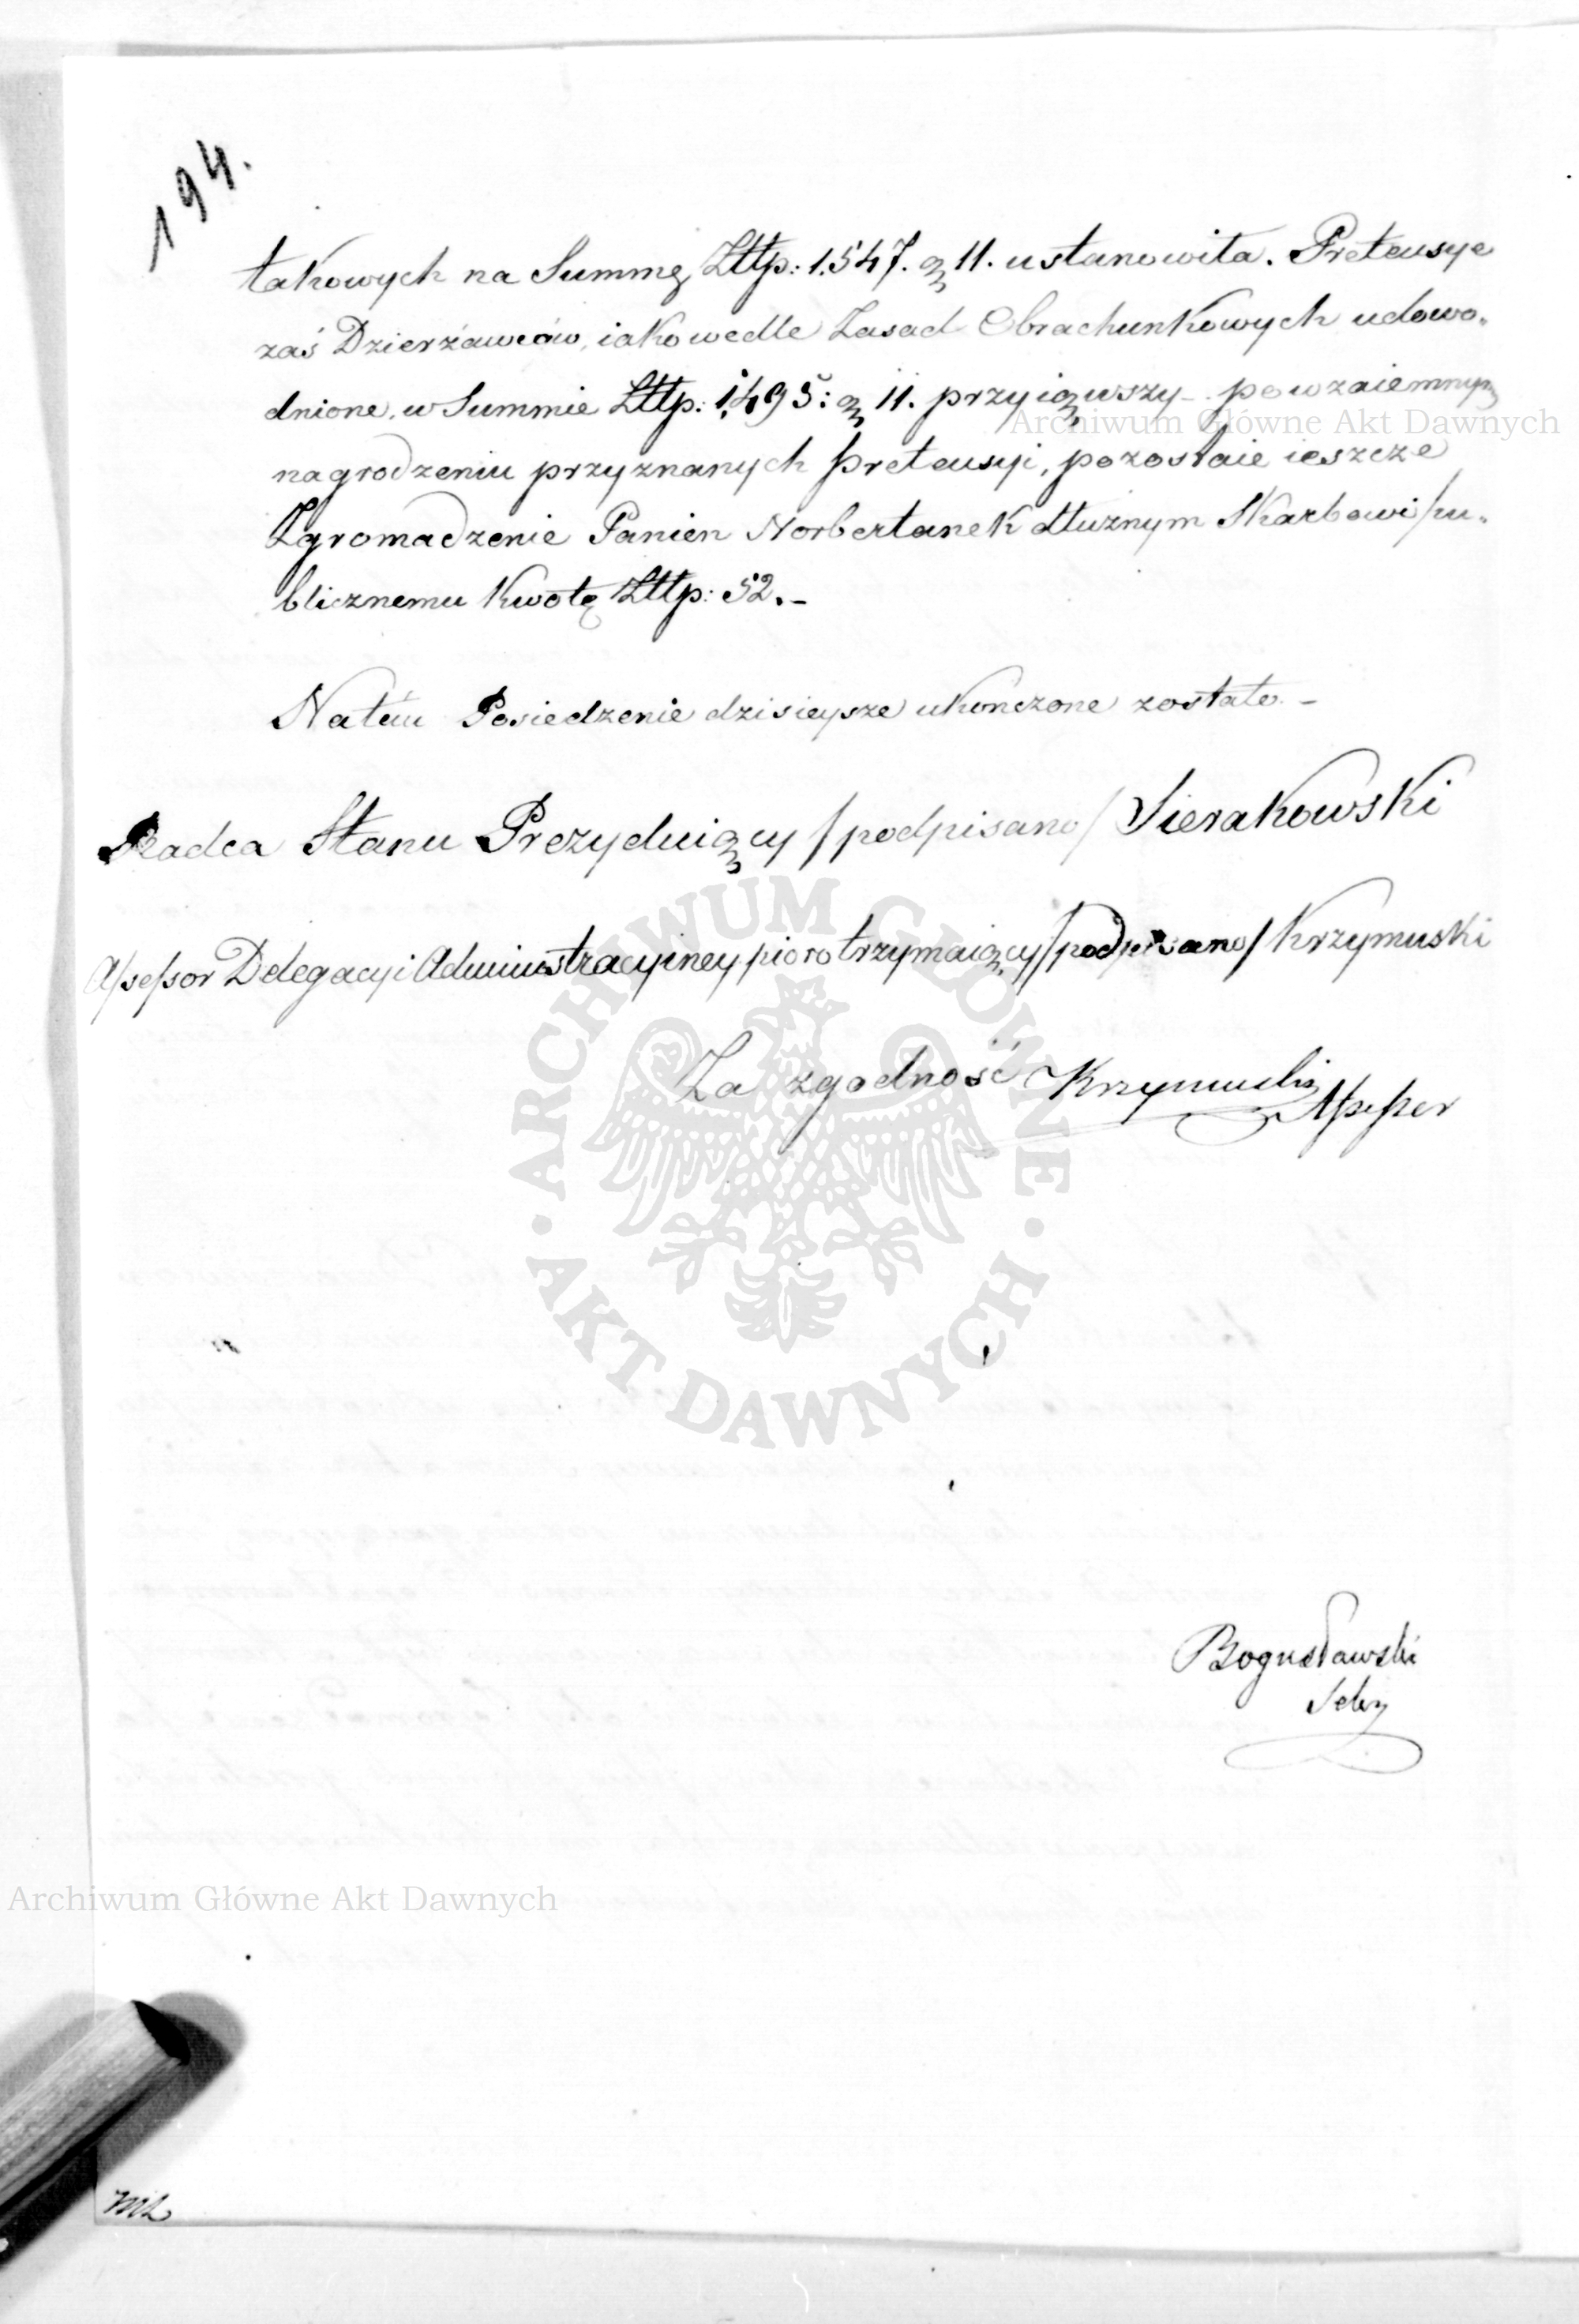 194.
takowych na Summę Złłp: 1.547. g 11. ustanowiła. Pretensye
zaś Dzierżawców, iako wedle Zasad Obrachunkowych udowo-
dnione, w Summie Złłp: 1,495: g 11. przyiąwszy - po wzaiemnym
Archiwum Główne Akt Dawnych
nagrodzeniu przyznanych pretensyi, pozostaie ieszcze
Zgromadzenie Panien Norbertanek dłużnym Skarbowi pu-
blicznemu kwotę Złłp: 52.-
Natém Posiedzenie dzisieysze ukończone zostało.-
Radca Stanu Prezyduiący /podpisano/ Sierakowski
Assessor Delegacyi Administracyiney pioro trzymaiący /podpisano/ Krzymuski
Za zgodność Krzymuski
Assessor
ARCHIWUM GŁÓWNE · AKT DAWNYCH ·
Bogusławski
Sekr
Archiwum Główne Akt Dawnych